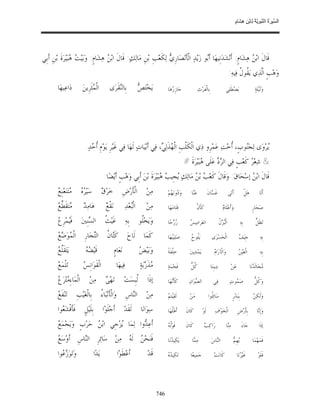 السّيرَةُ النّبَوِيّةُ لابْنِ هِشَامٍ
قَالَ ابْنُ هِشَامٍ: أَنْشَدَنِيهَا أَبُو زَيْدٍ الْأَنْصَارِيُّ لِكَعْبِ بْنِ مَالِكٍ. قَالَ ابْنُ هِشَامٍ: وَبَيْتُ هُبَيْرَةَ بْنِ أَبِي
وَهْبٍ الَّذِي يَقُولُ فِيهِ:
وَلَيْلَةٍ يَصْطَلِي بِالْفَرْثِ جَازِرُهَا يَخْتَصُّ بِالنَّقَرَى الْمُثْرِينَ دَاعِيهَا
يُرْوَى لِجَنُوبٍ، أُخْتِ عَمْرِو ذِي الْكَلْبِ الْهُذَلِيِّ، فِي أَبْيَاتٍ لَهَا فِي غَيْرِ يَوْمِ أُحُدٍ.
شِعْرُ كَعْبٍ فِي الرَّدِّ عَلَى هُبَيْرَةَ
قَالَ ابْنُ إسْحَاقَ: وَقَالَ كَعْبُ بْنُ مَالِكٍ يُجِيبُ هُبَيْرَةَ بْنَ أَبِي وَهْبٍ أَيْضًا:
أَلَا هَلْ أَتَى غَسَّانَ عَنَّا وَدُونَهُمْ مِنْ الْأَرْضِ خَرْقٌ سَيْرُهُ مُتَنَعْنِعُ
صَحَارٍ وَأَعْلَامٌ كَأَنَّ قَتَامَهَا مِنْ الْبُعْدِ نَقْعٌ هَامِدٌ مُتَقَطِّعُ
تَظَلُّ بِهِ الْبُزْلُ الْعَرَامِيسُ رُزَّحًا وَيَخْلُو بِهِ غَيْثُ السِّنِينَ فَيُمْرِعُ
بِهِ جِيَفُ الْحَسْرَى يَلُوحُ صَلِيبُهَا كَمَا لَاحَ كَتَّانُ التِّجَارِ الْمُوَضَّعُ
بِهِ الْعِينُ وَالْآرَامُ يَمْشِينَ خِلْفَةً وَبَيْضُ نَعَامٍ قَيْضُهُ يَتَقَلَّعُ
مُجَالَدُنَا عَنْ دِينِنَا كُلُّ فَخْمَةٍ مُذَرَّبَةٍ فِيهَا الْقَوَانِسُ تَلْمَعُ
وَكُلُّ صَمُوتٍ فِي الصِّوَانِ كَأَنَّهَا إذَا لُبِسَتْ نَهْيٌ مِنْ الْمَاءِ مُتْرَعُ
وَلَكِنْ بِبَدْرٍ سَائِلُوا مَنْ لَقِيتُمْ مِنْ النَّاسِ وَالْأَنْبَاءُ بِالْغَيْبِ تَنْفَعُ
وَإِنَّا بِأَرْضِ الْخَوْفِ لَوْ كَانَ أَهْلُهَا سِوَانَا لَقَدْ أَجْلَوْا بِلَيْلٍ فَأَقْشَعُوا
إذَا جَاءَ مِنَّا رَاكِبٌ كَانَ قَوْلُهُ أَعِدُّوا لِمَا يُزْجِي ابْنُ حَرْبٍ وَيَجْمَعُ
فَمَهْمَا يُهِمُّ النَّاسَ مِمَّا يَكِيدُنَا فَنَحْنُ لَهُ مِنْ سَائِرِ النَّاسِ أَوْسَعُ
فَلَوْ غَيْرُنَا كَانَتْ جَمِيعًا تَكِيدُهُ قَدْ أَعْطَوْا يَدًا وَتَوَزَّعُوا
746